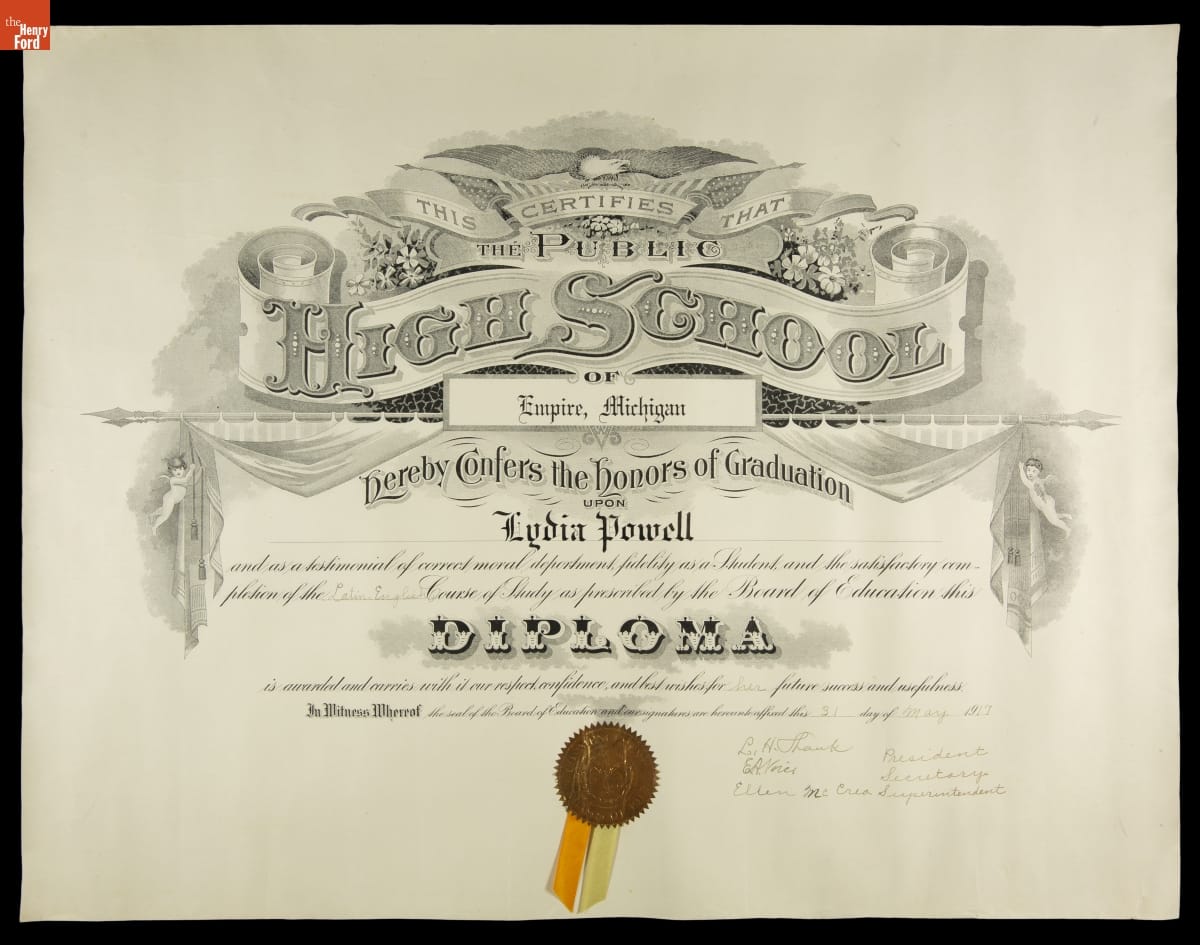 the
Henry
Ford
THIS CERTIFIES THAT
THE PUBLIC
HIGH SCHOOL
OF
Empire, Michigan
hereby Confers the honors of Graduation
UPON
Lydia Powell
and as a testimonial of correct moral deportment, fidelity as a Student, and the satisfactory com-
pletion of the Latin-English Course of Study as prescribed by the Board of Education this
DIPLOMA
is awarded and carries with it our respect, confidence, and best wishes for her future success and usefulness.
In Witness Whereof the seal of the Board of Education and our signatures are hereunto affixed this 31 day of May 1917
L. H. President
E.A. Secretary
Ellen McCrea Superintendent